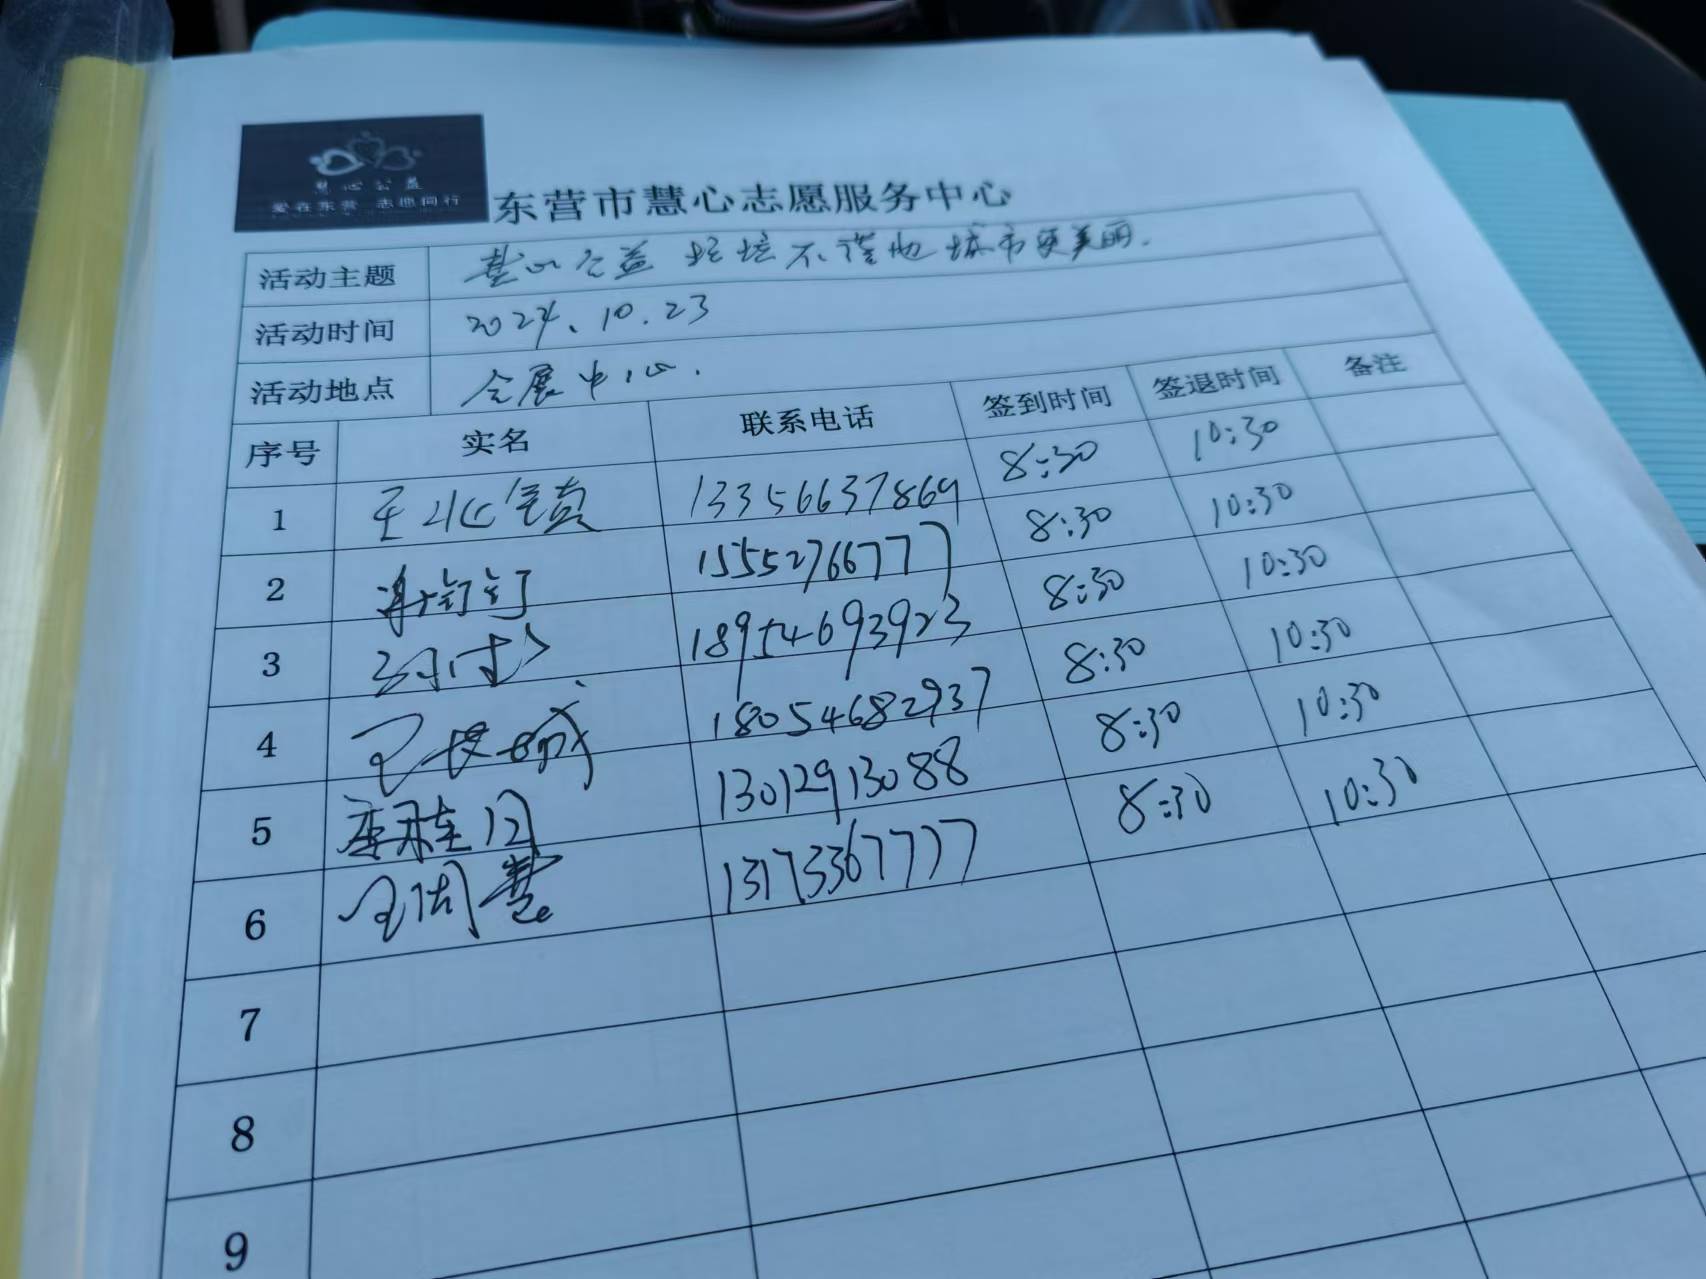 慧心公益
爱在东营 志愿同行
东营市慧心志愿服务中心
活动主题 慧心公益 垃圾不落地 城市更美丽.
活动时间 2024.10.23
活动地点 会展中心.
序号 实名 联系电话 签到时间 签退时间 备注
1 13356637869 8:30 10:30
2 15552766777 8:30 10:30
3 18954693923 8:30 10:30
4 18054682937 8:30 10:30
5 13012913088 8:30 10:30
6 13173367777 8:30 10:30
7
8
9